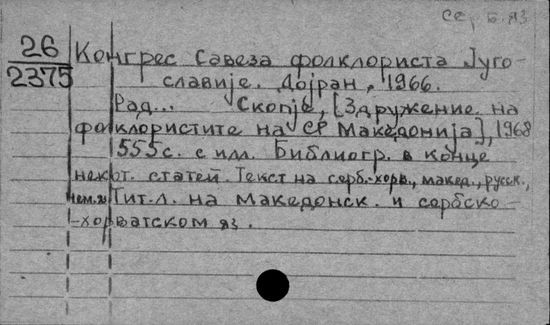 Серб. яз
26
2375
Конгрес Савеза фолклориста Југо-
славије. Дојран, 1966.
Рад... Скопје, [Здружение на
фолклористите на СР Македонија], 1968
555с. с илл. Библиогр. в конце
некот. статей. Текст на серб.-хорв., макед., русск.,
нем. яз Тит. л. на македонск. и сербско-
-хорватском яз.